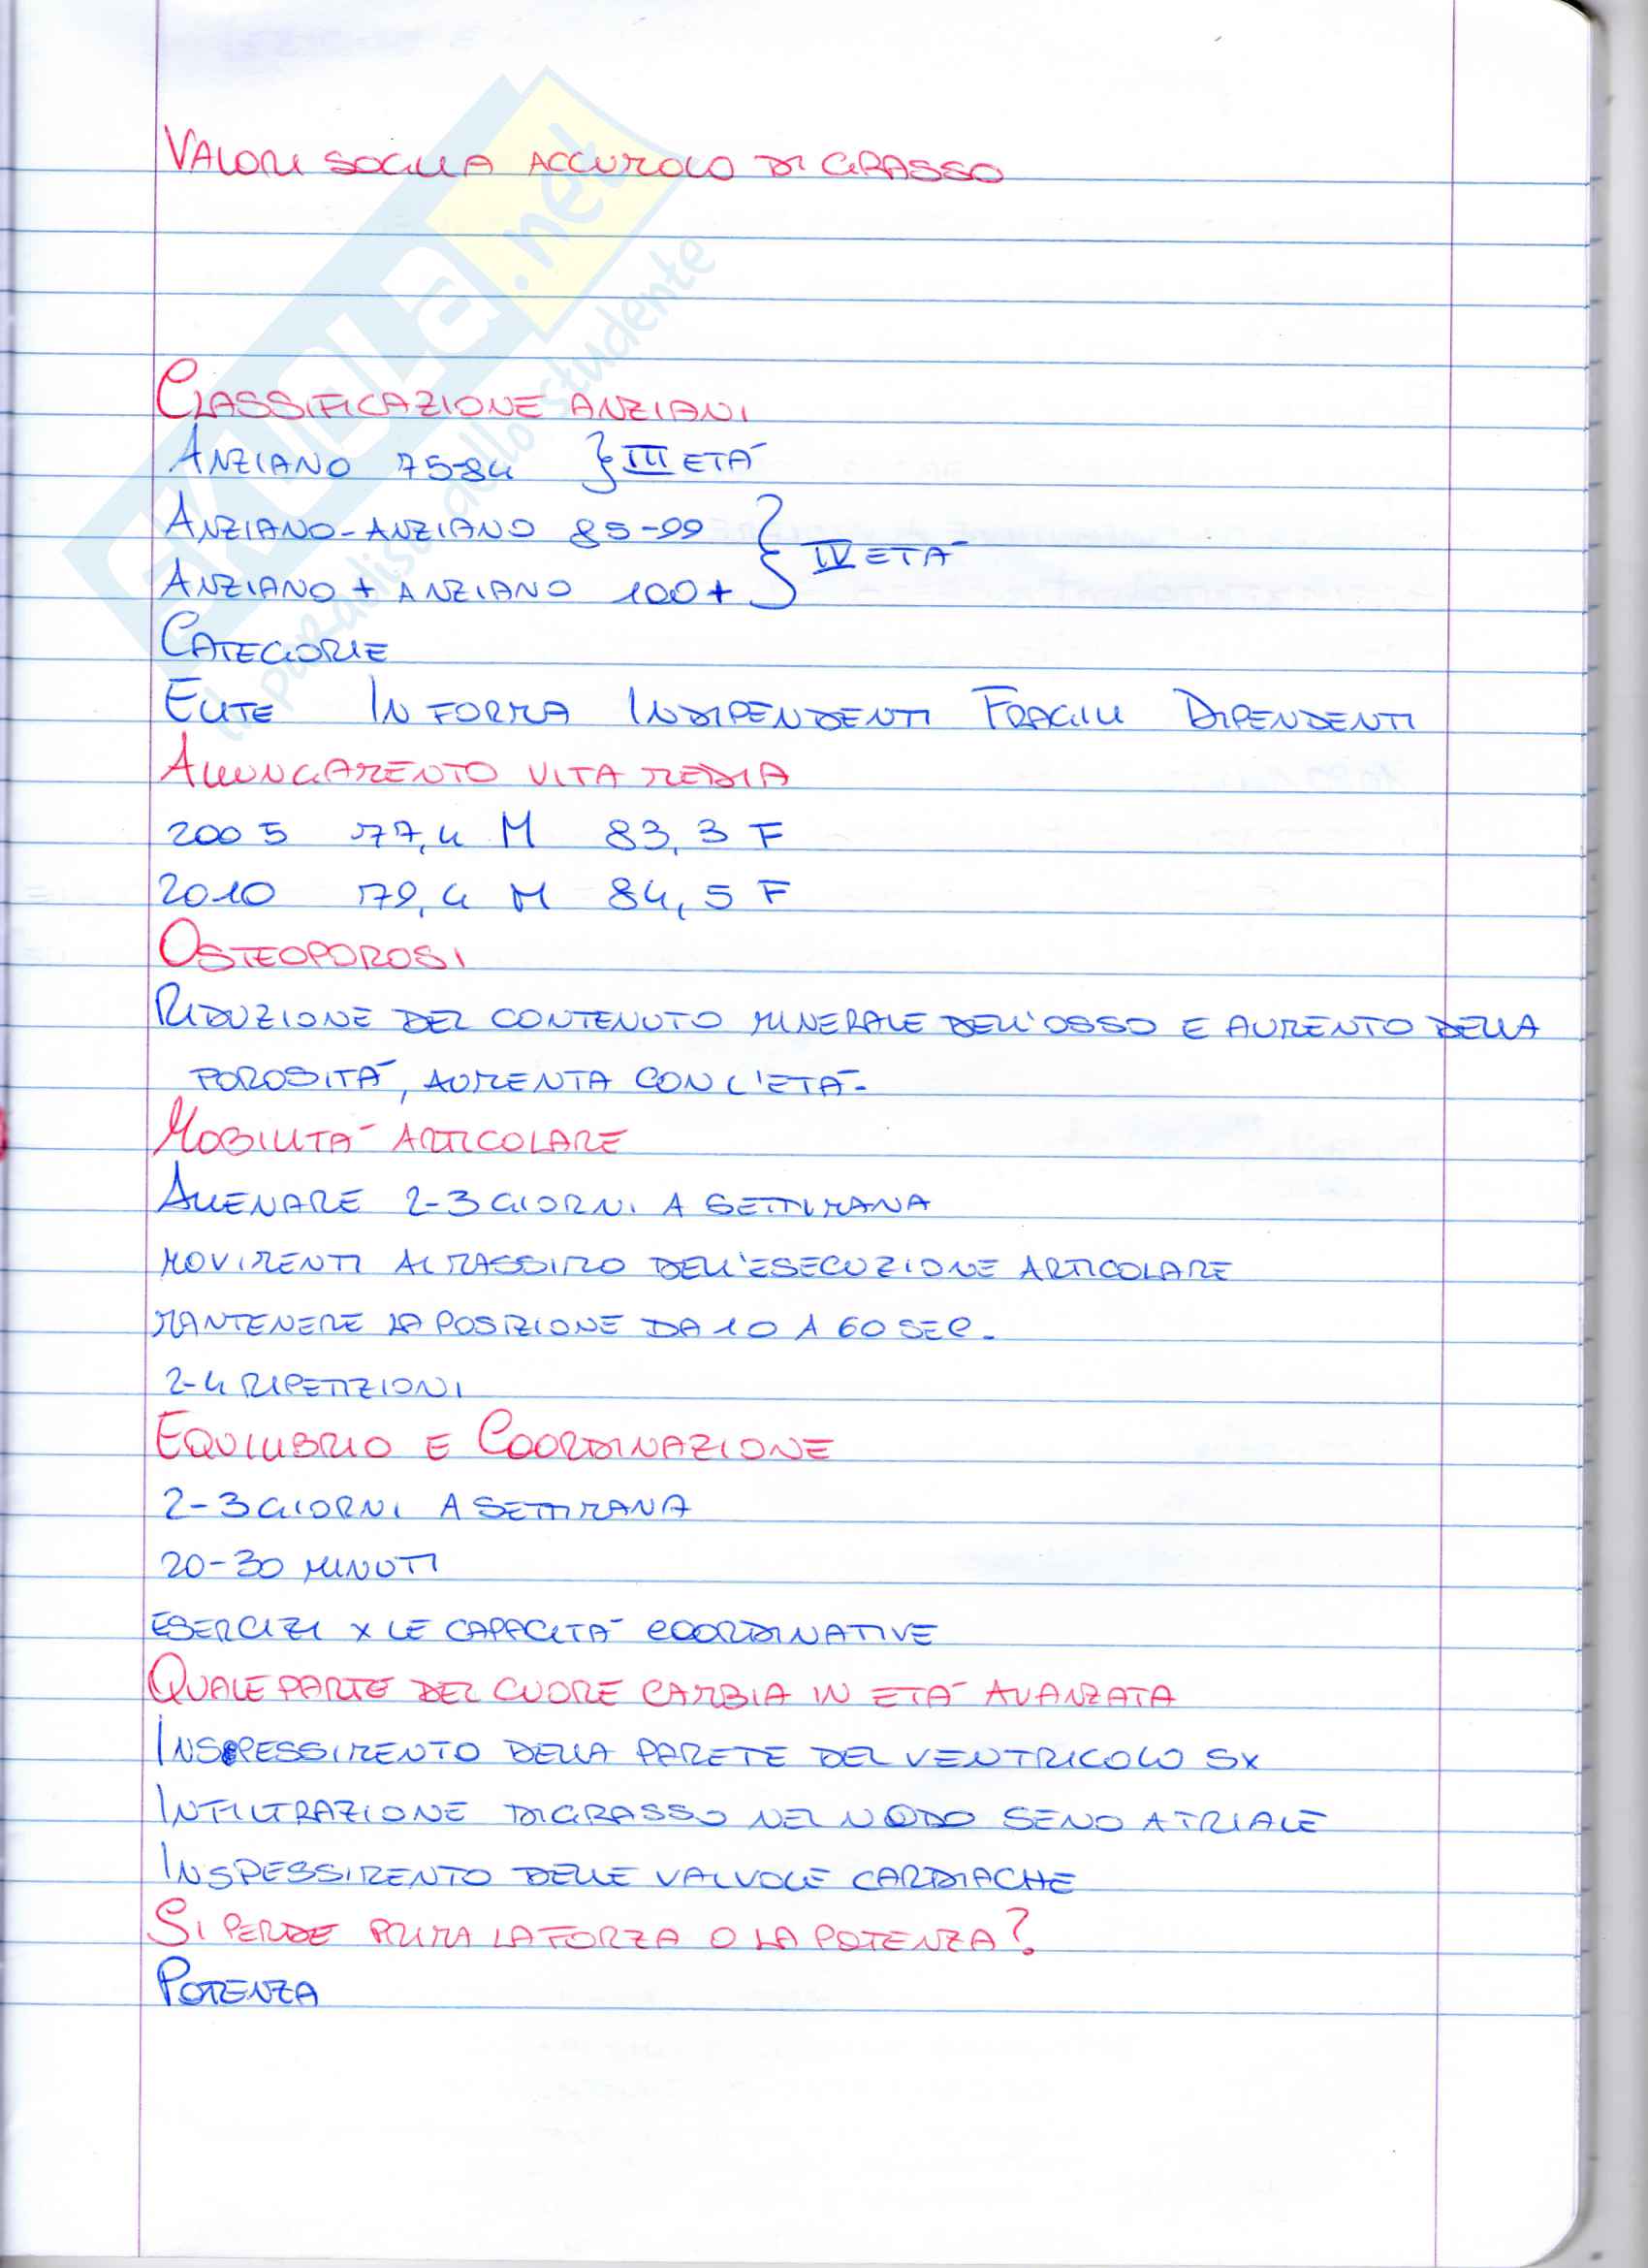 VALORI SOGLIA ACCUMOLO DI GRASSO
CLASSIFICAZIONE ANZIANI
ANZIANO 75-84 } III ETÀ
ANZIANO-ANZIANO 85-99
} IV ETÀ
ANZIANO + ANZIANO 100+
CATEGORIE
ELITE IN FORMA INDIPENDENTI FRAGILI DIPENDENTI
ALLUNGAMENTO VITA MEDIA
2005 77,4 M 83,3 F
2010 79,4 M 84,5 F
OSTEOPOROSI
RIDUZIONE DEL CONTENUTO MINERALE DELL'OSSO E AUMENTO DELLA
POROSITÀ, AUMENTA CON L'ETÀ.
MOBILITÀ ARTICOLARE
ALLENARE 2-3 GIORNI A SETTIMANA
MOVIMENTI AL MASSIMO DELL'ESECUZIONE ARTICOLARE
MANTENERE LA POSIZIONE DA 10 A 60 SEC.
2-4 RIPETIZIONI
EQUILIBRIO E COORDINAZIONE
2-3 GIORNI A SETTIMANA
20-30 MINUTI
ESERCIZI X LE CAPACITÀ COORDINATIVE
QUALE PARTE DEL CUORE CAMBIA IN ETÀ AVANZATA
INSPESSIMENTO DELLA PARETE DEL VENTRICOLO SX
INFILTRAZIONE DI GRASSO NEL NODO SENO ATRIALE
INSPESSIMENTO DELLE VALVOLE CARDIACHE
SI PERDE PRIMA LA FORZA O LA POTENZA?
POTENZA
SKUOLA.net
il paradiso dello studente